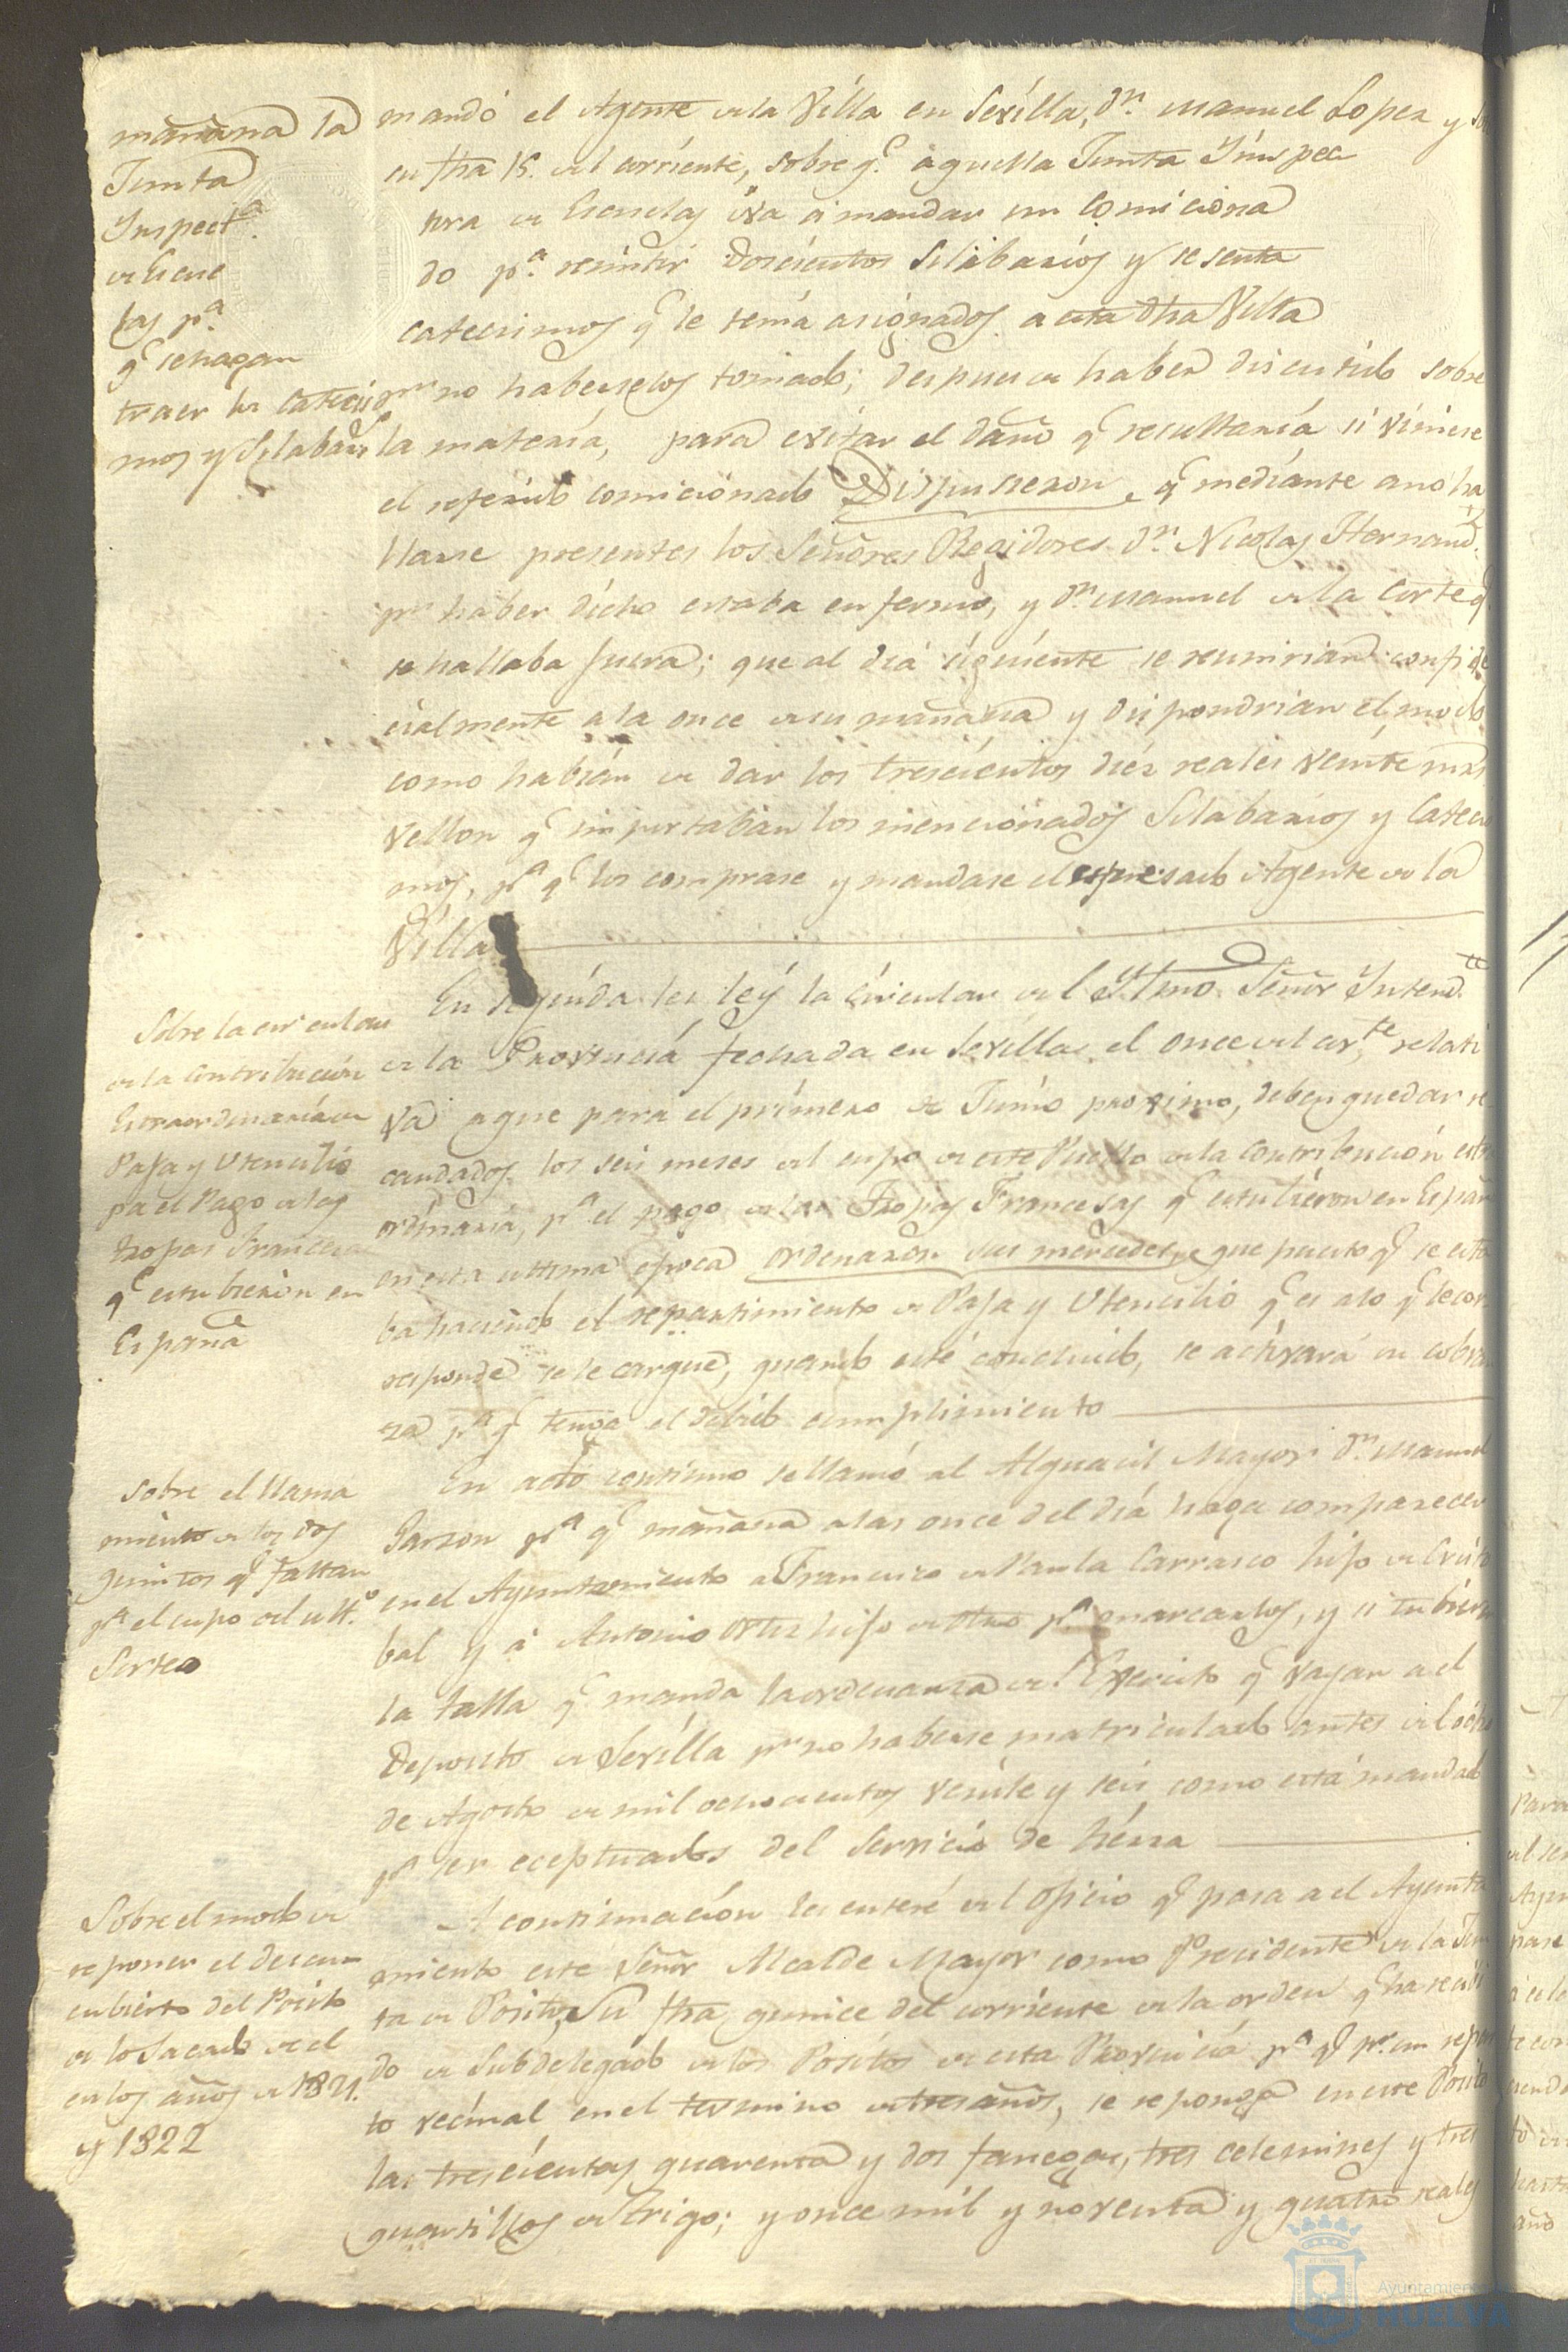 mañana la
Junta
Inspect.ª
de Escue
las p.ª
q.e se hagan
traer los Catecis
mos y Silabarios
mandó el Agente de la Villa en Sevilla, D.n Manuel Lopez y
en fha 15. del corriente, sobre q.e aquella Junta Ynspec
tora de Escuelas iva á mandar un Comiciona
do p.ª remitir Doscientos Silabarios y sesenta
catecismos q.e le tenia asignados a esta dha Villa
p.r no haberselos tomado; despues de haber discutido sobre
la materia, para evitar el daño q.e resultaria si viniese
el referido comicionado Dispusieron, q.e mediante a no ha
llarse presentes los Señores Regidores D.n Nicolas Hernand.z
p.r haber dicho estaba enfermo, y D.n Manuel de la Corte q.e
se hallaba fuera; que al dia siguiente se reunirian confide
cialmente a la once de su mañana y dispondrian el modo
como habian de dar los trescientos diez reales veinte mrs
vellon q.e importaban los mencionados Silabarios y Catecis
mos, p.ª q.e los comprase y mandase el espresado Agente de la
Villa
Sobre la circular
de la Contribucion
Extraordinaria de
Paja y Utencilio
pa el Pago de las
tropas Francesas
q.e estubieron en
España
En seguida les leÿ la circular del Yltmo. Señor Yntend.te
de la Provincia fechada en Sevilla el once del cor.te relati
va a que para el primero de Junio proximo, deben quedar re
caudados los seis meses del cupo de este Pueblo de la contribucion estra
ordinaria, p.ª el pago de las Tropas Francesas q.e estubieron en España
en esta ultima epoca ordenaron sus mercedes, que puesto q.e se esta
ba haciendo el repartimiento de Paja y Utencilio q.e es a lo q.e le cor
responde se le cargue, quando esté concluido, se activará su cobran
za p.ª q.e tenga el debido cumplimiento
Sobre el llama
miento de los dos
quintos q.e faltan
p.ª el cupo del ult.º
Sorteo
En acto continuo se llamó al Alguacil Mayor D.n Manuel
Garzon p.ª q.e mañana a las once del dia haga comparecer
en el Ayuntamiento a Francisco de Paula Carrasco hijo de Cristo
bal y á Antonio Ortiz hijo de otro p.ª marcarlos, y si tubieren
la talla q.e manda la ordenanza del Exercito q.e vayan a el
Deposito de Sevilla p.r no haberse matriculado antes del ocho
de Agosto de mil ochocientos veinte y seis como está mandado
p.ª ser eceptuados del Servicio de tierra
Sobre el modo de
reponer el descu
cubierto del Posito
de lo Sacado de el
en los años de 1821.
y 1822
A continuacion les enteré del oficio q.e pasa a el Ayunta
miento este Señor Alcalde Mayor como Precidente de la Jun
ta de Posito, Su fha quince del corriente de la orden q.e ha recibi
do de Subdelegado de los Positos de esta Provincia p.ª q.e p.r un repar
to vecinal en el termino de tres años, se reponga en este Posito
las trescientas quarenta y dos fanegas, tres celemines y tres
quartillos de Trigo; y once mil y noventa y quatro reales
Ayuntamiento
HUELVA